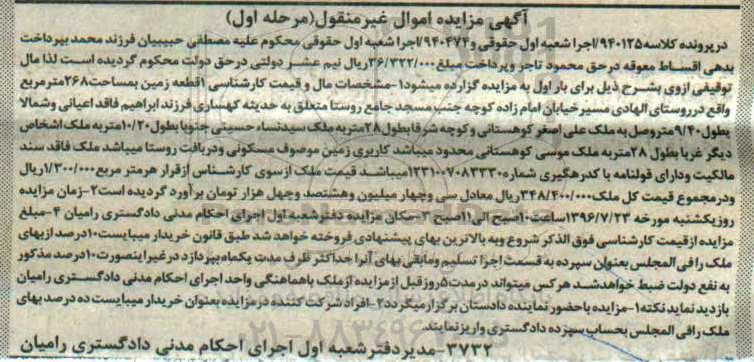 آگهی مزایده اموال غیرمنقول(مرحله اول)
درپرونده کلاسه۹۴۰۱۲۵/اجرا شعبه اول حقوقی و۹۴۰۴۷۴/اجرا شعبه اول حقوقی محکوم علیه مصطفی حبیبیان فرزند محمد بپرداخت
بدهی اقساط معوقه درحق محمود تاجر وپرداخت مبلغ۳۶/۳۲۲/۰۰۰ریال نیم عشر دولتی درحق دولت محکوم گردیده است لذا مال
توقیفی ازوی بشرح ذیل برای بار اول به مزایده گزارده میشود۱-مشخصات مال و قیمت کارشناسی ۱قطعه زمین بمساحت۲۶۸مترمربع
واقع درروستای الهادی مسیر خیابان امام زاده کوچه جنب مسجد جامع روستا متعلق به حدیثه کهساری فرزند ابراهیم فاقد اعیانی وشمالا
بطول۹/۴۰متروصل به ملک علی اصغر کوهستانی وکوچه شرقا بطول۲۸متربه ملک سیدنساء حسینی جنوبا بطول۱۰/۲۰متربه ملک اشخاص
دیگر غربا بطول ۲۸متربه ملک موسی کوهستانی محدود میباشد کاربری زمین موصوف مسکونی ودربافت روستا میباشد ملک فاقد سند
مالکیت ودارای قولنامه با کدرهگیری شماره۱۲۳۱۰۰۷۰۸۳۳۳۰میباشد قیمت ملک ازسوی کارشناس ازقرار هرمتر مربع۱/۳۰۰/۰۰۰ریال
ودرمجموع قیمت کل ملک۳۴۸/۴۰۰/۰۰۰ریال معادل سی وچهار میلیون وهشتصد وچهل هزار تومان برآورد گردیده است۲-زمان مزایده
روز یکشنبه مورخه ۱۳۹۶/۷/۲۳ساعت۱۰صبح الی۱۱صبح ۳-مکان مزایده دفتر شعبه اول اجرای احکام مدنی دادگستری رامیان ۴-مبلغ
مزایده ازقیمت کارشناسی فوق الذکر شروع وبه بالاترین بهای پیشنهادی فروخته خواهد شد طبق قانون خریدار میبایست۱۰درصد ازبهای
ملک را فی المجلس بعنوان سپرده به قسمت اجرا تسلیم ومابقی بهای آنرا حداکثر ظرف مدت یکماه بپردازد درغیراینصورت۱۰درصد مذکور
به نفع دولت ضبط خواهدشد هرکس میتواند درمدت۵روز قبل از مزایده از ملک باهماهنگی واحد اجرای احکام مدنی دادگستری رامیان
بازدید نماید نکته۱-مزایده باحضور نماینده دادستان برگزار میگردد۲-افراد شرکت کننده در مزایده بعنوان خریدار میبایست ده درصد بهای
ملک رافی المجلس بحساب سپرده دادگستری واریز نمایند.
۳۷۳۲-مدیردفترشعبه اول اجرای احکام مدنی دادگستری رامیان